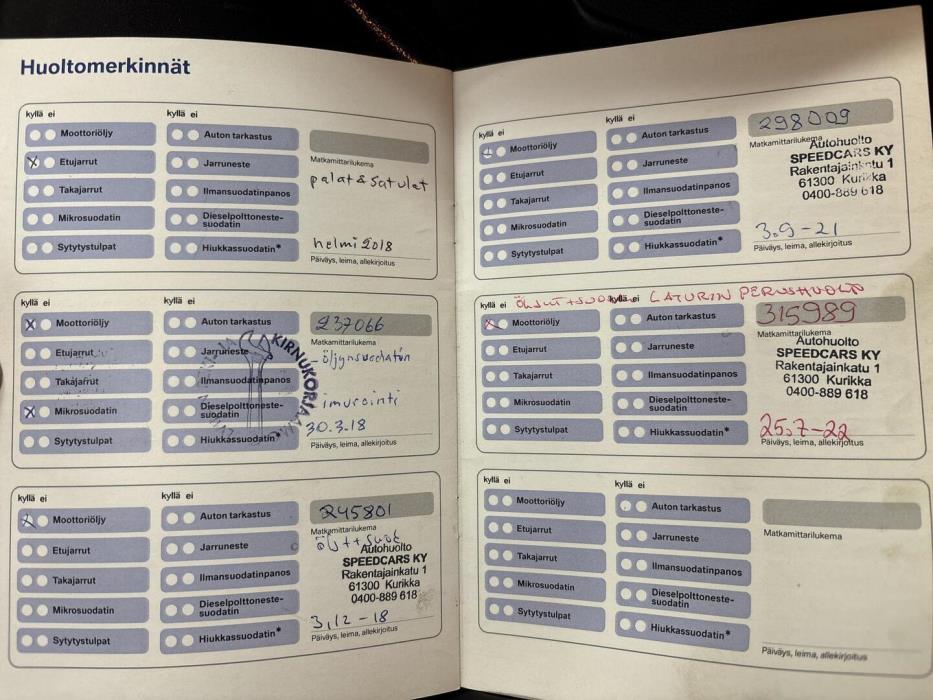 Huoltomerkinnät
kyllä ei
kyllä ei
Moottoriöljy
Auton tarkastus
X Etujarrut
Jarruneste
Matkamittarilukema
palat & satulat
Takajarrut
Ilmansuodatinpanos
Mikrosuodatin
Dieselpolttoneste-
suodatin
Sytytystulpat
Hiukkassuodatin*
helmi 2018
Päiväys, leima, allekirjoitus
kyllä ei
kyllä ei
X Moottoriöljy
Auton tarkastus
237066
Matkamittarilukema
Etujarrut
Jarruneste
- öljynsuodatin
Takajarrut
Ilmansuodatinpanos
KIRNUKORJAAMO
X Mikrosuodatin
Dieselpolttoneste-
suodatin
imurointi
30.3.18
Sytytystulpat
Hiukkassuodatin*
Päiväys, leima, allekirjoitus
kyllä ei
kyllä ei
X Moottoriöljy
Auton tarkastus
245801
Matkamittarilukema
Etujarrut
Jarruneste
Autohuolto
SPEEDCARS KY
Rakentajainkatu 1
61300 Kurikka
0400-889 618
Takajarrut
Ilmansuodatinpanos
Mikrosuodatin
Dieselpolttoneste-
suodatin
3.12-18
Sytytystulpat
Hiukkassuodatin*
Päiväys, leima, allekirjoitus
kyllä ei
kyllä ei
Moottoriöljy
Auton tarkastus
298009
Matkamittarilukema
Autohuolto
SPEEDCARS KY
Rakentajainkatu 1
61300 Kurikka
0400-889 618
Etujarrut
Jarruneste
Takajarrut
Ilmansuodatinpanos
Mikrosuodatin
Dieselpolttoneste-
suodatin
3.9-21
Sytytystulpat
Hiukkassuodatin*
Päiväys, leima, allekirjoitus
kyllä ei
kyllä ei
LATURIN PERUSHUOLTO
X Moottoriöljy
Auton tarkastus
315989
Matkamittarilukema
Autohuolto
SPEEDCARS KY
Rakentajainkatu 1
61300 Kurikka
0400-889 618
Etujarrut
Jarruneste
Takajarrut
Ilmansuodatinpanos
Mikrosuodatin
Dieselpolttoneste-
suodatin
25.7-22
Sytytystulpat
Hiukkassuodatin*
Päiväys, leima, allekirjoitus
kyllä ei
kyllä ei
Moottoriöljy
Auton tarkastus
Matkamittarilukema
Etujarrut
Jarruneste
Takajarrut
Ilmansuodatinpanos
Mikrosuodatin
Dieselpolttoneste-
suodatin
Sytytystulpat
Hiukkassuodatin*
Päiväys, leima, allekirjoitus